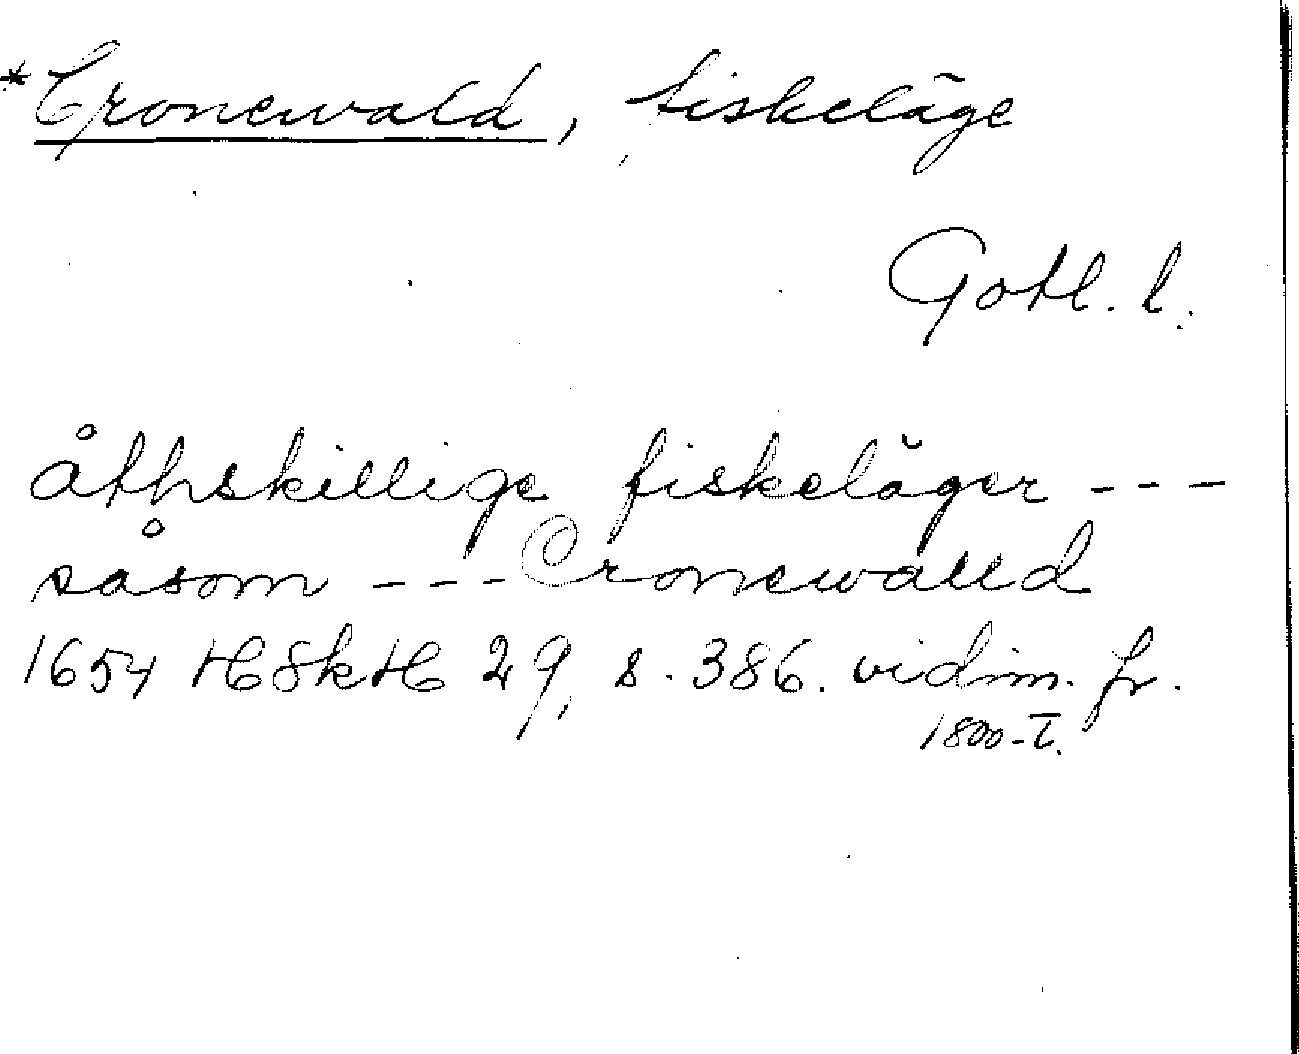 *Cronewald, fiskeläge
Gotl. l.
åthskillige fiskeläger ---
såsom --- Cronewalld
1654 HSkH 29, s. 386. vidim. fr.
1800-t.